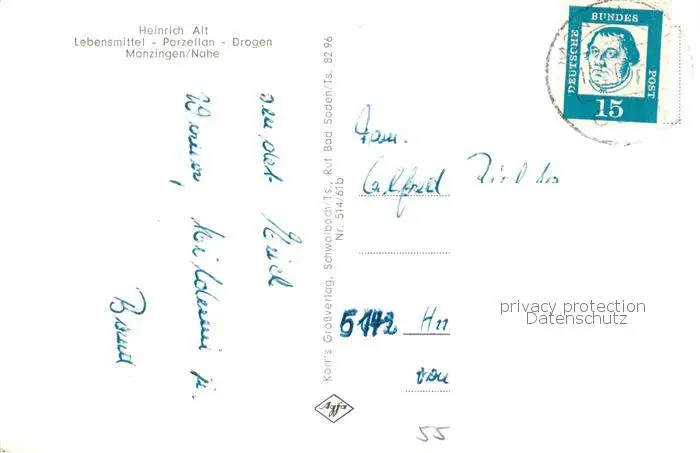 Heinrich Alt
Lebensmittel - Porzellan - Drogen
Monzingen/Nahe
sendet Euch
Werner,
Korr's Großverlag, Schwalbach/Ts., Ruf Bad Soden/Ts. 82 96
Nr. 514/61b
Agfa
DEUTSCHE
BUNDES
POST
15
Fam.
Alfred
5142
von
55
privacy protection
Datenschutz